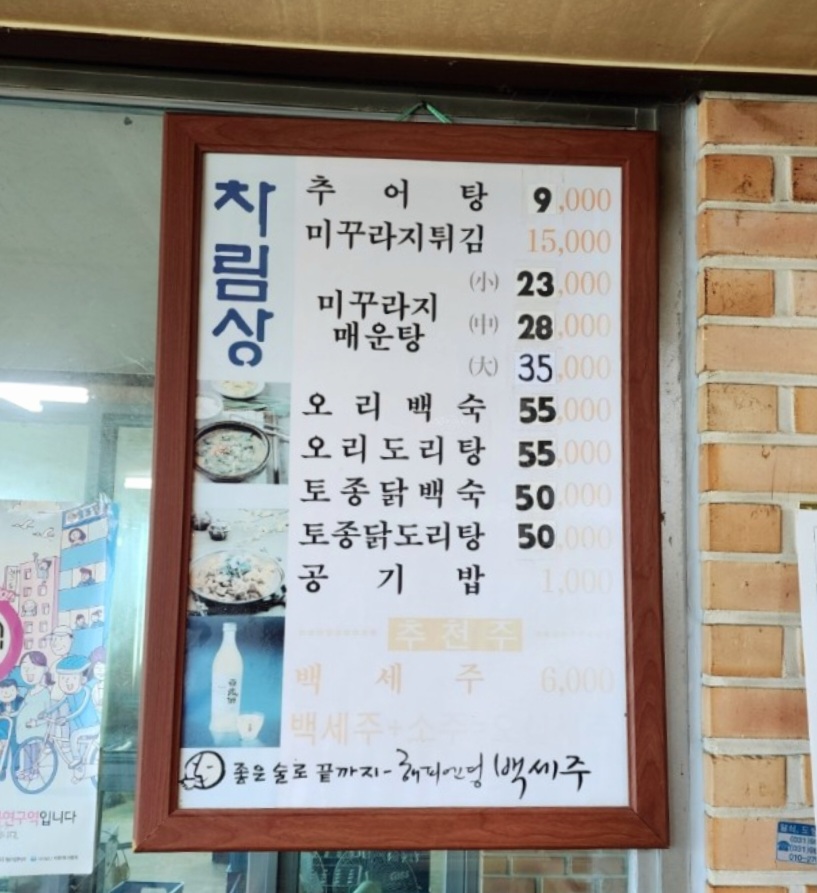 차림상
추어탕 9,000
미꾸라지튀김 15,000
미꾸라지
매운탕
(小) 23,000
(中) 28,000
(大) 35,000
오리백숙 55,000
오리도리탕 55,000
토종닭백숙 50,000
토종닭도리탕 50,000
공기밥 1,000
추천주
백세주 6,000
백세주+소주
좋은술로 끝까지-해피엔딩 백세주
연구역입니다